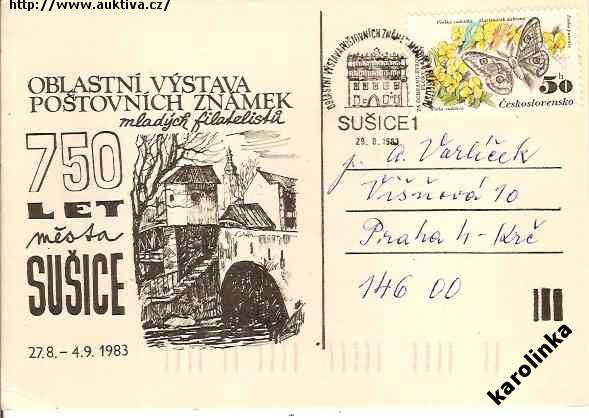 http://www.auktiva.cz/
OBLASTNÍ VÝSTAVA
POŠTOVNÍCH ZNÁMEK
mladých filatelistů
750
LET
města
SUŠICE
27.8. – 4.9. 1983
SUŠICE 1
29. 8. 1983
50 h
Československo
p. A. Varlíček
Višňová 10
Praha 4 - Krč
146 00
karolinka